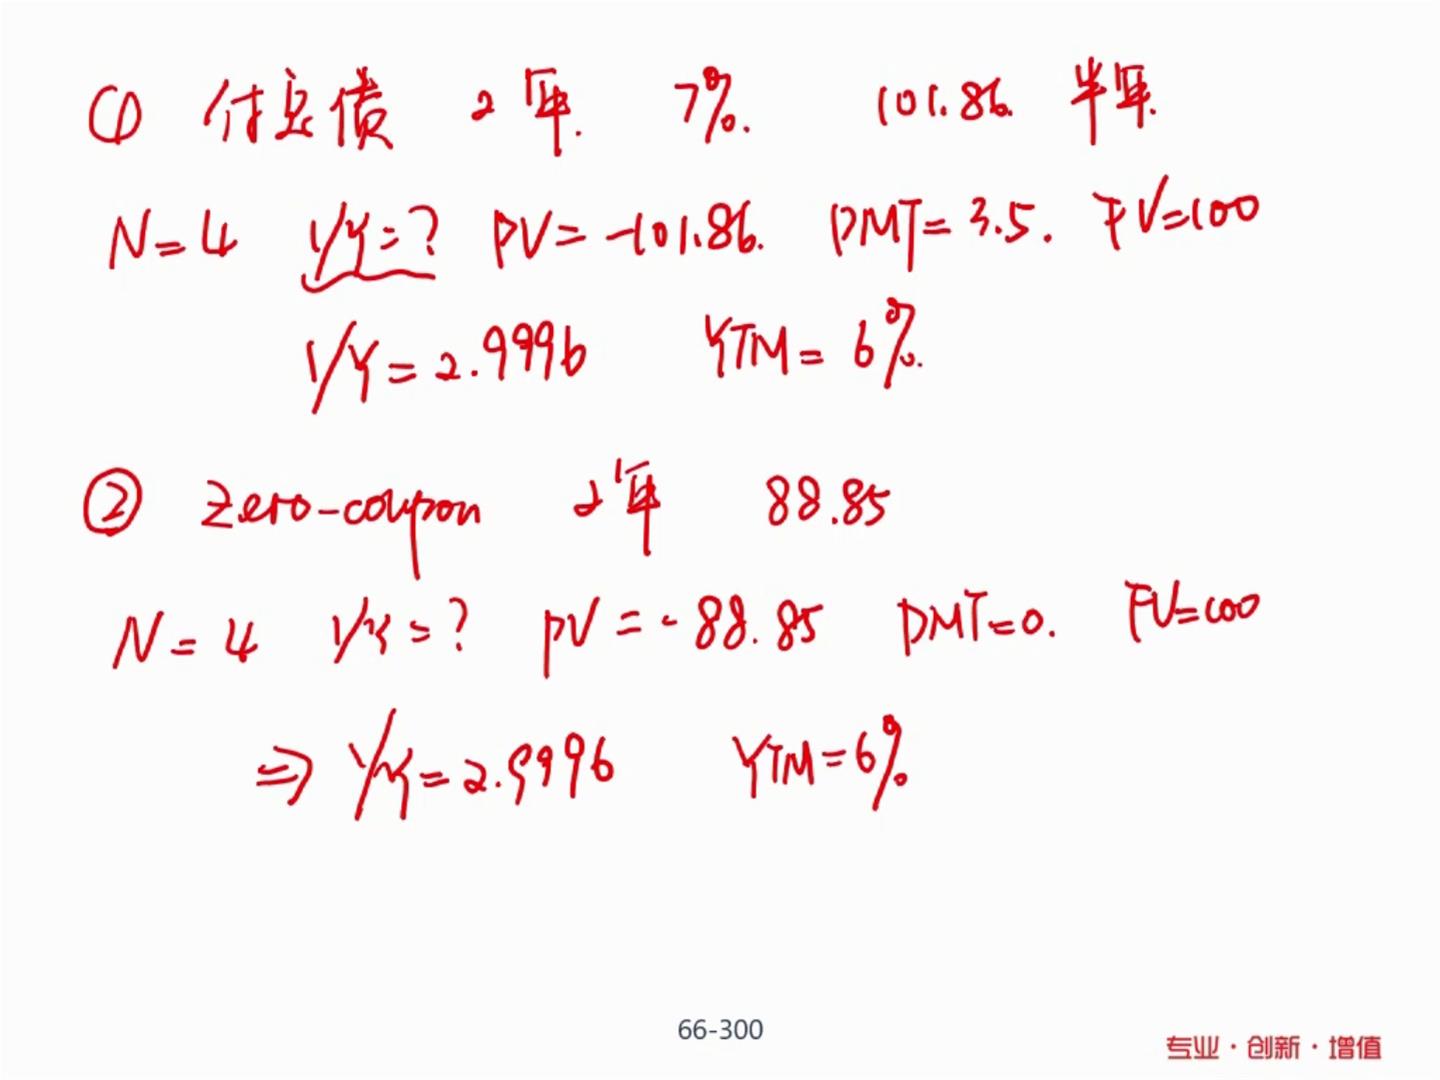 ① 付息债 2年. 7%. 101.86. 半年.
N=4 I/Y=? PV=-101.86. PMT=3.5. FV=100
I/Y=2.9996 YTM=6%.
② Zero-coupon 2年 88.85
N=4 I/Y=? PV=-88.85 PMT=0. FV=100
⇒ I/Y=2.9996 YTM=6%
66-300
专业·创新·增值